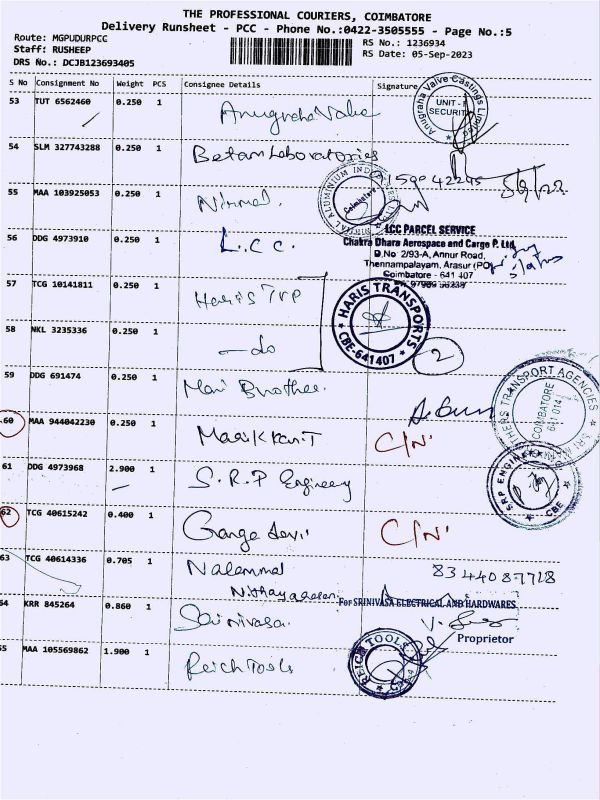 THE PROFESSIONAL COURIERS, COIMBATORE
Delivery Runsheet - PCC - Phone No.:0422-3505555 - Page No.:5
Route: MGPUDURPCC
Staff: RUSHEEP
DRS No.: DCJB123693405
RS No.: 1236934
RS Date: 05-Sep-2023
S No Consignment No Weight PCS Consignee Details Signature
53 TUT 6562460 0.250 1 Anugraha Valve
Anugraha Valve Castings Limited
UNIT-
SECURITY
54 SLM 327743288 0.250 1 Betam Laboratories
159042245 5/9/23
55 MAA 103925053 0.250 1 Nirmal
ALUMINIUM
Coimbatore
56 DDG 4973910 0.250 1 L.C.C.
LCC PARCEL SERVICE
Chakra Dhara Aerospace and Cargo P. Ltd,
D.No 2/93-A, Annur Road,
Thennampalayam, Arasur (PO)
Coimbatore - 641 407
57 TCG 10141811 0.250 1 Haris TVP
HARIS TRANSPORTS
CBE-641407
58 NKL 3235336 0.250 1 - do
2
59 DDG 691474 0.250 1 Mari Brother.
TRANSPORT AGENCIES
COIMBATORE
641 014
60 MAA 944042230 0.250 1 C/N'
61 DDG 4973968 2.900 1 S.R.P Engineery
SRP ENGINE
CBE
62 TCG 40615242 0.400 1 Ganga devi C/N'
63 TCG 40614336 0.705 1 Nalammal
8344087728
64 KRR 845264 0.860 1 Sainivasa
For SRINIVASA ELECTRICAL AND HARDWARES
Proprietor
55 MAA 105569862 1.900 1 Reich Tools
REICH TOOLS